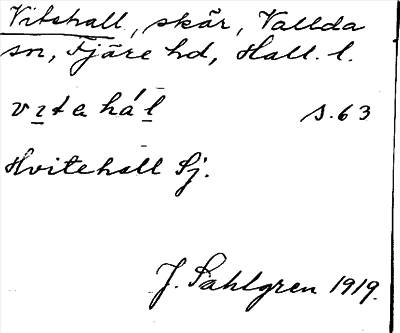 Vitshall, skär, Vallda
sn, Fjäre hd, Hall. l.
vɪtahál s. 63
Hvitehall Sj.
J. Sahlgren 1919.